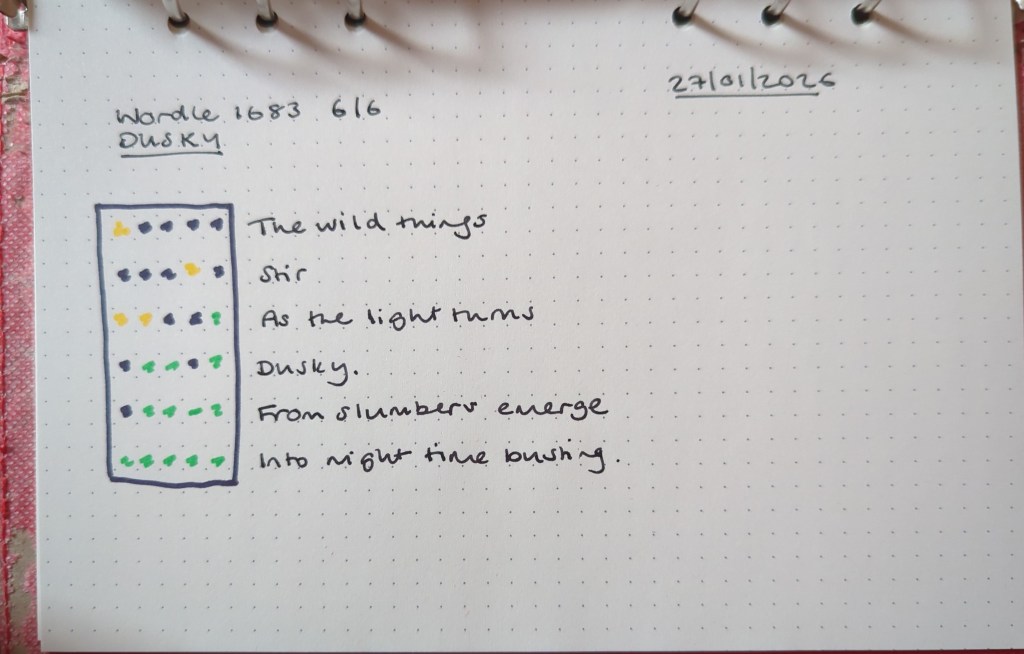 27/01/2026
Wordle 1683 6/6
DUSKY
The wild things
Stir
As the light turns
Dusky.
From slumbers emerge
Into night time